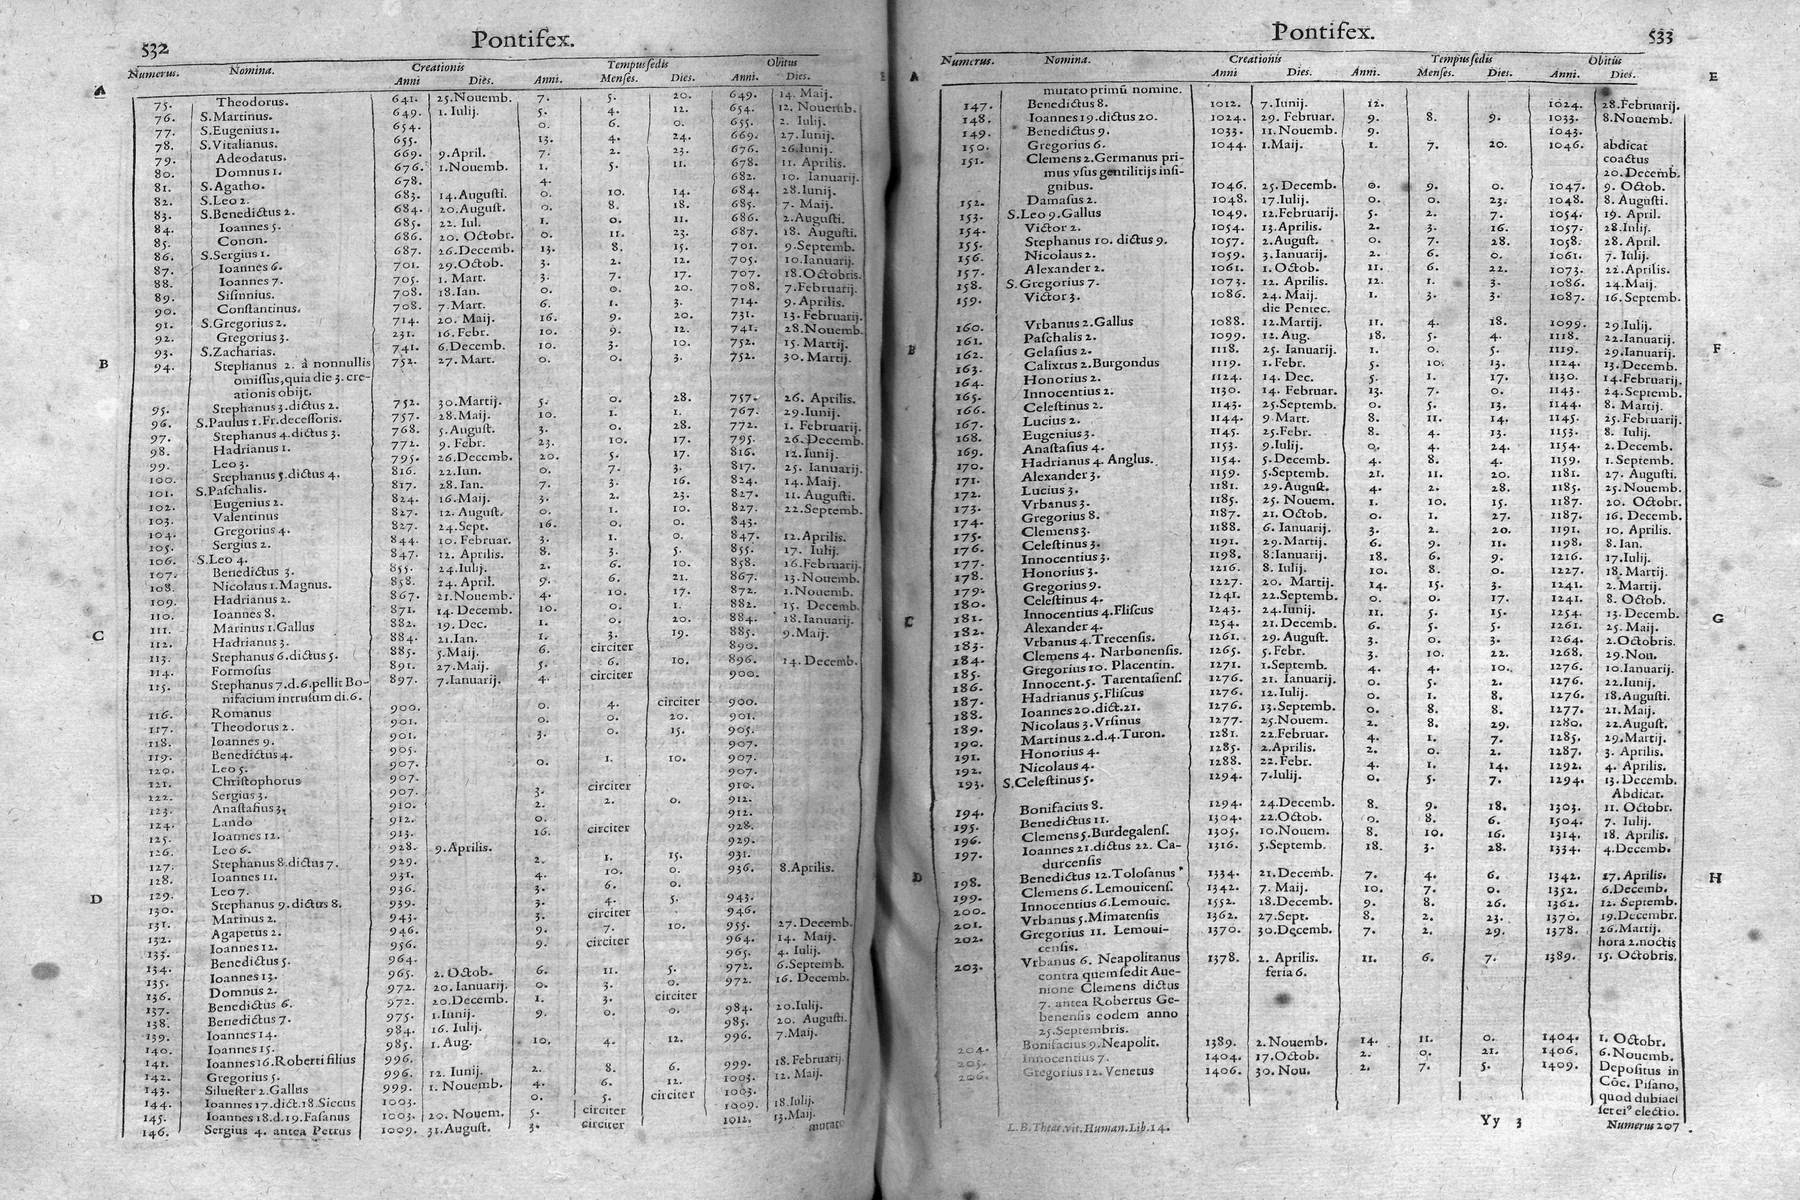 532 Pontifex.
Numerus. Nomina. Creationis Tempus sedis Obitus
Anni Dies. Anni. Menses. Dies. Anni. Dies.
A
75. Theodorus. 641. 25.Nouemb. 7. 5. 20. 649. 14. Maij.
76. S.Martinus. 649. 1. Iulij. 5. 4. 12. 654. 12. Nouemb.
77. S.Eugenius 1. 654. 0. 6. 0. 655. 2. Iulij.
78. S.Vitalianus. 655. 13. 4. 24. 669. 27.Iunij.
79. Adeodatus. 669. 9.April. 7. 2. 23. 676. 26.Iunij.
80. Domnus 1. 676. 1.Nouemb. 1. 5. 11. 678. 11. Aprilis.
81. S.Agatho. 678. 4. 682. 10. Ianuarij.
82. S.Leo 2. 683. 14.Augusti. 0. 10. 14. 684. 28.Iunij.
83. S.Benedictus 2. 684. 20.August. 0. 8. 18. 685. 7. Maij.
84. Ioannes 5. 685. 22. Iul. 1. 0. 11. 686. 2.Augusti.
85. Conon. 686. 20. Octobr. 0. 11. 23. 687. 18. Augusti.
86. S.Sergius 1. 687. 26.Decemb. 13. 8. 15. 701. 9.Septemb.
87. Ioannes 6. 701. 29.Octob. 3. 2. 12. 705. 10.Ianuarij.
88. Ioannes 7. 705. 1. Mart. 3. 7. 17. 707. 18.Octobris.
89. Sisinnius. 708. 18.Ian. 0. 0. 20. 708. 7.Februarij.
90. Constantinus. 708. 7. Mart. 6. 1. 3. 714. 9. Aprilis.
91. S.Gregorius 2. 714. 20. Maij. 16. 9. 20. 731. 13. Februarij.
92. Gregorius 3. 231. 16. Febr. 10. 9. 12. 741. 28.Nouemb.
93. S.Zacharias. 741. 6.Decemb. 10. 3. 10. 752. 15. Martij.
B
94. Stephanus 2. à nonnullis 752. 27. Mart. 0. 0. 3. 752. 30. Martij.
omissus,quia die 3. cre-
ationis obijt.
95. Stephanus 3.dictus 2. 752. 30.Martij. 5. 0. 28. 757. 26. Aprilis.
96. S.Paulus 1.Fr.decessoris. 757. 28.Maij. 10. 1. 1. 767. 29.Iunij.
97. Stephanus 4.dictus 3. 768. 5.August. 3. 0. 28. 772. 1. Februarij.
98. Hadrianus 1. 772. 9. Febr. 23. 10. 17. 795. 26.Decemb.
99. Leo 3. 795. 26.Decemb. 20. 5. 17. 816. 12.Iunij.
100. Stephanus 5.dictus 4. 816. 22.Iun. 0. 7. 3. 817. 25. Ianuarij.
101. S.Paschalis. 817. 28. Ian. 7. 3. 16. 824. 14.Maij.
102. Eugenius 2. 824. 16.Maij. 3. 2. 23. 827. 11. Augusti.
103. Valentinus 827. 12. August. 0. 1. 10. 827. 22.Septemb.
104. Gregorius 4. 827. 24.Sept. 16. 0. 0. 843.
105. Sergius 2. 844. 10. Februar. 3. 1. 0. 847. 12.Aprilis.
106. S.Leo 4. 847. 12. Aprilis. 8. 3. 5. 855. 17. Iulij.
107. Benedictus 3. 855. 24.Iulij. 2. 6. 10. 858. 16.Februarij.
108. Nicolaus 1.Magnus. 858. 24. April. 9. 6. 21. 867. 13.Nouemb.
109. Hadrianus 2. 867. 21.Nouemb. 4. 10. 17. 872. 1.Nouemb.
110. Ioannes 8. 871. 14. Decemb. 10. 0. 1. 882. 15. Decemb.
C
111. Marinus 1.Gallus 882. 19. Dec. 1. 0. 20. 884. 18.Ianuarij.
112. Hadrianus 3. 884. 21.Ian. 1. 3. 19. 885. 9.Maij.
113. Stephanus 6.dictus 5. 885. 5.Maij. 6. circiter 890.
114. Formosus 891. 27.Maij. 5. 6. 10. 896. 14. Decemb.
115. Stephanus 7.d.6.pellit Bo- 897. 7.Ianuarij. 4. circiter 900.
nifacium intrusum di.6.
116. Romanus 900. 0. 4. circiter 900.
117. Theodorus 2. 901. 0. 0. 20. 901.
118. Ioannes 9. 901. 3. 0. 15. 905.
119. Benedictus 4. 905. 907.
120. Leo 5. 907. 0. 1. 10. 907.
121. Christophorus 907.
122. Sergius 3. 907. 3. circiter 910.
123. Anastasius 3. 910. 2. 2. 0. 912.
124. Lando 912. 0. 912.
125. Ioannes 12. 913. 16. circiter 928.
126. Leo 6. 928. 9.Aprilis. 929.
127. Stephanus 8.dictus 7. 929. 2. 1. 15. 931.
128. Ioannes 11. 931. 4. 10. 0. 936. 8.Aprilis.
129. Leo 7. 936. 3. 6. 0.
D
130. Stephanus 9.dictus 8. 939. 3. 4. 5. 943.
131. Matinus 2. 943. 3. circiter 946.
132. Agapetus 2. 946. 9. 7. 10. 955. 27.Decemb.
133. Ioannes 12. 956. 9. circiter 964. 14. Maij.
134. Benedictus 5. 964. 965. 4. Iulij.
135. Ioannes 13. 965. 2. Octob. 6. 11. 5. 972. 6.Septemb.
136. Domnus 2. 972. 20. Ianuarij. 0. 3. 0. 972. 16. Decemb.
137. Benedictus 6. 972. 20.Decemb. 1. 3. circiter
138. Benedictus 7. 975. 1.Iunij. 9. 0. 0. 984. 20.Iulij.
139. Ioannes 14. 984. 16. Iulij. 985. 20. Augusti.
140. Ioannes 15. 985. 1. Aug. 10. 4. 12. 996. 7.Maij.
141. Ioannes 16.Roberti filius 996.
142. Gregorius 5. 996. 12. Iunij. 2. 8. 6. 999. 18.Februarij.
143. Siluester 2.Gallus 999. 1. Nouemb. 4. 6. 12. 1003. 12. Maij.
144. Ioannes 17.dict.18.Siccus 1003. 0. 5. circiter 1003.
145. Ioannes 18.d.19.Fasanus 1003. 20. Nouem. 5. circiter 1009. 18.Iulij.
146. Sergius 4. antea Petrus 1009. 31.August. 3. circiter 1012. 13.Maij.
mutato
Pontifex. 533
Numerus. Nomina. Creationis Tempus sedis Obitus
Anni Dies. Anni. Menses. Dies. Anni. Dies.
A E
mutato primũ nomine.
147. Benedictus 8. 1012. 7.Iunij. 12. 1024. 28.Februarij.
148. Ioannes 19.dictus 20. 1024. 29. Februar. 9. 8. 9. 1033. 8.Nouemb.
149. Benedictus 9. 1033. 11.Nouemb. 9. 1043.
150. Gregorius 6. 1044. 1.Maij. 1. 7. 20. 1046. abdicat
151. Clemens 2.Germanus pri- coactus
mus vsus gentilitijs insi- 20.Decemb.
gnibus. 1046. 25. Decemb. 0. 9. 0. 1047. 9. Octob.
152. Damasus 2. 1048. 17.Iulij. 0. 0. 23. 1048. 8. Augusti.
153. S.Leo 9.Gallus 1049. 12.Februarij. 5. 2. 7. 1054. 19. April.
154. Victor 2. 1054. 13.Aprilis. 2. 3. 16. 1057. 28.Iulij.
155. Stephanus 10. dictus 9. 1057. 2.August. 0. 7. 28. 1058. 28. April.
156. Nicolaus 2. 1059. 3. Ianuarij. 2. 6. 0. 1061. 7. Iulij.
157. Alexander 2. 1061. 1. Octob. 11. 6. 22. 1073. 22.Aprilis.
158. S.Gregorius 7. 1073. 12. Aprilis. 12. 1. 3. 1086. 24.Maij.
159. Victor 3. 1086. 24. Maij. 1. 3. 3. 1087. 16.Septemb.
die Pentec.
160. Vrbanus 2.Gallus 1088. 12.Martij. 11. 4. 18. 1099. 29.Iulij.
161. Paschalis 2. 1099. 12.Aug. 18. 5. 4. 1118. 22.Ianuarij.
B F
162. Gelasius 2. 1118. 25. Ianuarij. 1. 0. 5. 1119. 29.Ianuarij.
163. Calixtus 2.Burgondus 1119. 1.Febr. 5. 10. 13. 1124. 13.Decemb.
164. Honorius 2. 1124. 14. Dec. 5. 1. 17. 1130. 14.Februarij.
165. Innocentius 2. 1130. 14. Februar. 13. 7. 0. 1143. 24.Septemb.
166. Celestinus 2. 1143. 25.Septemb. 0. 5. 13. 1144. 8. Martij.
167. Lucius 2. 1144. 9.Mart. 8. 11. 14. 1145. 25.Februarij.
168. Eugenius 3. 1145. 25.Febr. 8. 4. 13. 1153. 8. Iulij.
169. Anastasius 4. 1153. 9.Iulij. 0. 4. 24. 1154. 2.Decemb.
170. Hadrianus 4. Anglus. 1154. 5.Decemb. 4. 8. 4. 1159. 1.Septemb.
171. Alexander 3. 1159. 5.Septemb. 21. 11. 20. 1181. 27. Augusti.
172. Lucius 3. 1181. 29.August. 4. 2. 28. 1185. 25.Nouemb.
173. Vrbanus 3. 1185. 25. Nouem. 1. 10. 15. 1187. 20. Octobr.
174. Gregorius 8. 1187. 21. Octob. 0. 1. 27. 1187. 16. Decemb.
175. Clemens 3. 1188. 6. Ianuarij. 3. 2. 20. 1191. 10. Aprilis.
176. Celestinus 3. 1191. 29.Martij. 6. 9. 11. 1198. 8. Ian.
177. Innocentius 3. 1198. 8.Ianuarij. 18. 6. 9. 1216. 17.Iulij.
178. Honorius 3. 1216. 8. Iulij. 10. 8. 0. 1227. 18. Martij.
179. Gregorius 9. 1227. 20. Martij. 14. 15. 3. 1241. 2. Martij.
180. Celestinus 4. 1241. 22.Septemb. 0. 0. 17. 1241. 8. Octob.
C G
181. Innocentius 4.Fliscus 1243. 24.Iunij. 11. 5. 15. 1254. 13. Decemb.
182. Alexander 4. 1254. 21.Decemb. 6. 5. 5. 1261. 25. Maij.
183. Vrbanus 4.Trecensis. 1261. 29. August. 3. 0. 3. 1264. 2.Octobris.
184. Clemens 4. Narbonensis. 1265. 5.Febr. 3. 10. 22. 1268. 29.Nou.
185. Gregorius 10. Placentin. 1271. 1.Septemb. 4. 4. 10. 1276. 10.Ianuarij.
186. Innocent.5. Tarentasiens. 1276. 21. Ianuarij. 0. 5. 2. 1276. 22.Iunij.
187. Hadrianus 5.Fliscus 1276. 12.Iulij. 0. 1. 8. 1276. 18.Augusti.
188. Ioannes 20.dict.21. 1276. 13.Septemb. 0. 8. 8. 1277. 21.Maij.
189. Nicolaus 3.Vrsinus 1277. 25.Nouem. 2. 8. 29. 1280. 22.August.
190. Martinus 2.d.4.Turon. 1281. 22.Februar. 4. 1. 7. 1285. 29.Martij.
191. Honorius 4. 1285. 2.Aprilis. 2. 0. 2. 1287. 3. Aprilis.
192. Nicolaus 4. 1288. 22.Febr. 4. 1. 14. 1292. 4. Aprilis.
193. S.Celestinus 5. 1294. 7.Iulij. 0. 5. 7. 1294. 13. Decemb.
Abdicat.
194. Bonifacius 8. 1294. 24.Decemb. 8. 9. 18. 1303. 11. Octobr.
195. Benedictus 11. 1304. 22.Octob. 0. 8. 6. 1504. 7. Iulij.
196. Clemens 5.Burdegalens. 1305. 10.Nouem. 8. 10. 16. 1314. 18. Aprilis.
197. Ioannes 21.dictus 22. Ca- 1316. 5.Septemb. 18. 3. 28. 1334. 4.Decemb.
durcensis
D H
198. Benedictus 12.Tolosanus 1334. 21.Decemb. 7. 4. 6. 1342. 27.Aprilis.
199. Clemens 6.Lemouicens. 1342. 7. Maij. 10. 7. 0. 1352. 6.Decemb.
200. Innocentius 6.Lemouic. 1552. 18.Decemb. 9. 8. 26. 1362. 12. Septemb.
201. Vrbanus 5.Mimatensis 1362. 27.Sept. 8. 2. 23. 1370. 19.Decembr.
202. Gregorius 11. Lemoui- 1370. 30.Decemb. 7. 2. 29. 1378. 26.Martij.
censis. hora 2.noctis
203. Vrbanus 6. Neapolitanus 1378. 2. Aprilis. 11. 6. 7. 1389. 15. Octobris.
contra quem sedit Aue- feria 6.
nione Clemens dictus
7. antea Robertus Ge-
benensis eodem anno
25.Septembris.
204. Bonifacius 9.Neapolit. 1389. 2.Nouemb. 14. 11. 0. 1404. 1. Octobr.
205. Innocentius 7. 1404. 17.Octob. 2. 0. 21. 1406. 6.Nouemb.
206. Gregorius 12. Venetus 1406. 30. Nou. 2. 7. 5. 1409. Depositus in
Côc. Pisano,
quod dubia ei
L.B. Theat.vit.Human.Lib.14. Yy 3 Numerus 207